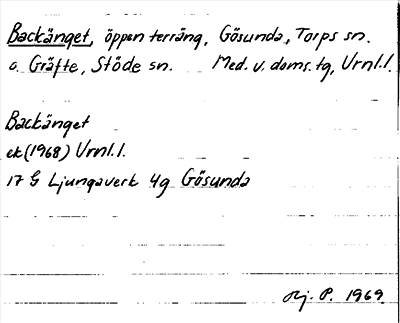 Backänget, öppen terräng, Gösunda, Torps sn.
o. Gräfte, Stöde sn. Med. v. doms. tg, Urnl. l.
Backänget
ek (1968) Urnl. l.
17 G Ljungaverk 4g Gösunda
Hj. P. 1969